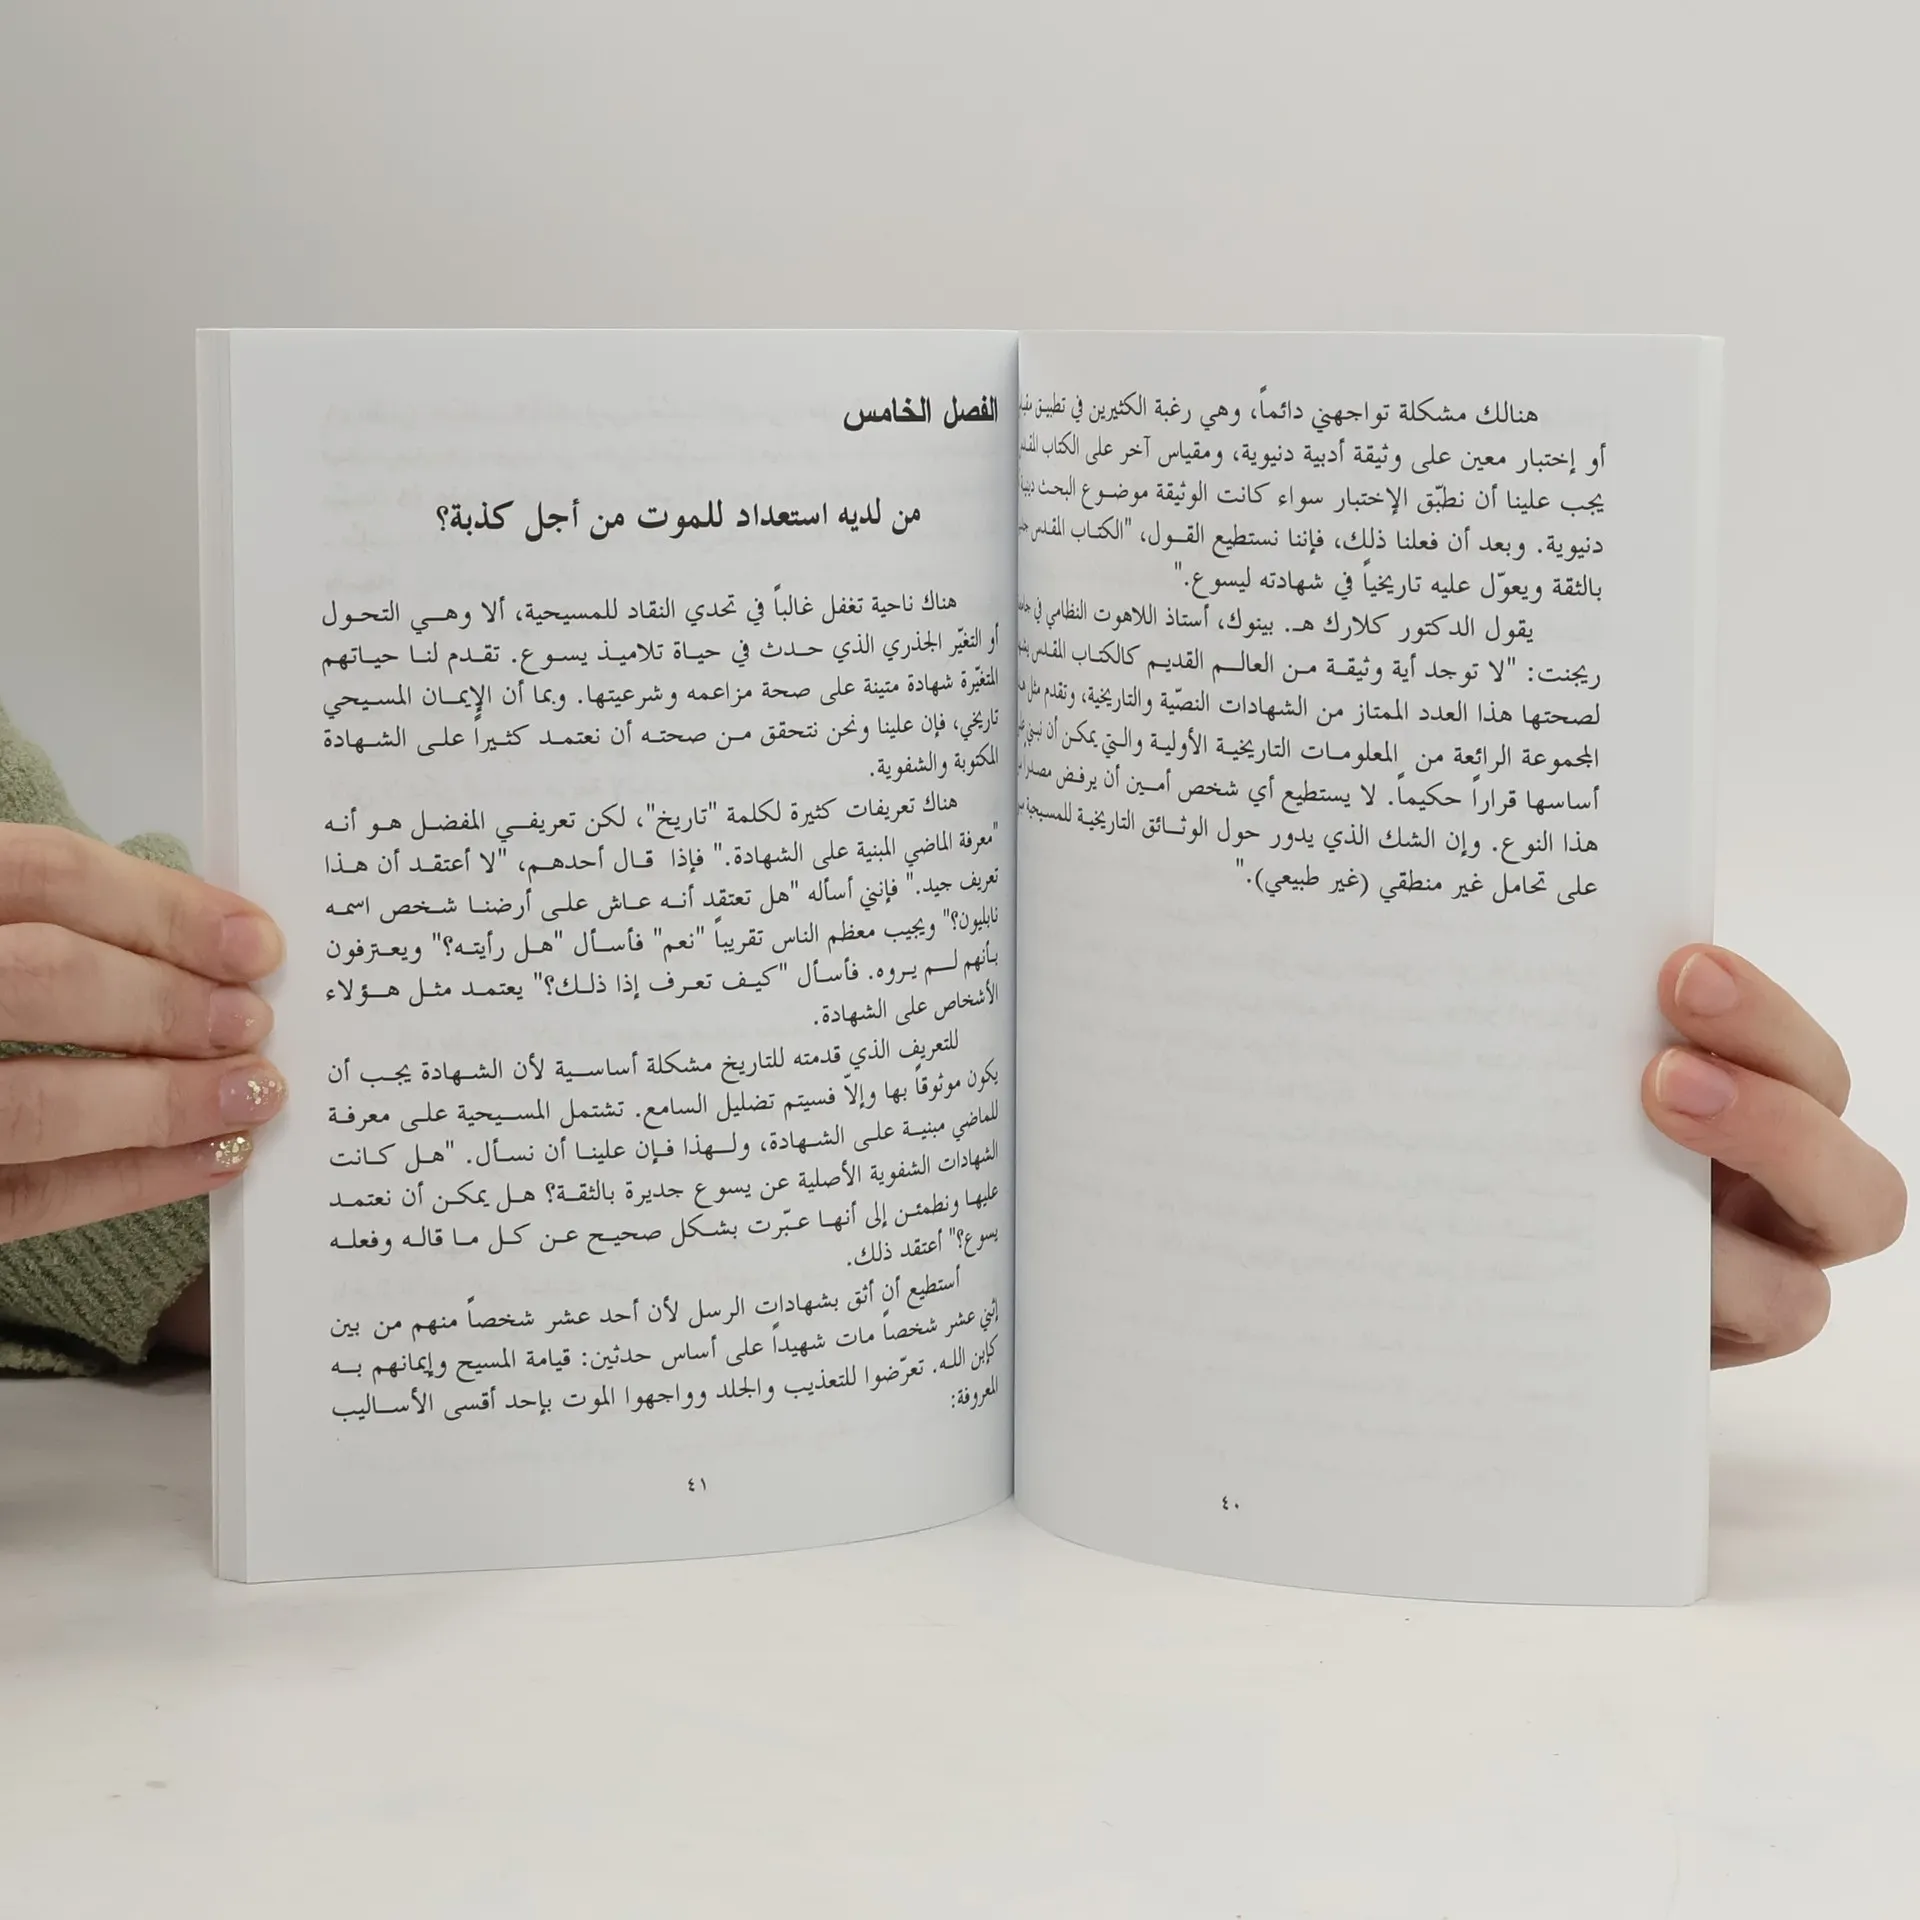 هنالك مشكلة تواجهني دائماً، وهي رغبة الكثيرين في تطبيق
أو إختبار معين على وثيقة أدبية دنيوية، ومقياس آخر على الكتاب
يجب علينا أن نطبّق الإختبار سواء كانت الوثيقة موضوع البحث
دنيوية. وبعد أن فعلنا ذلك، فإننا نستطيع القول، "الكتاب المقدس
بالثقة ويعوّل عليه تاريخياً في شهادته ليسوع."
يقول الدكتور كلارك هـ. بينوك، أستاذ اللاهوت النظامي في
ريجنت: "لا توجد أية وثيقة من العالم القديم كالكتاب المقدس
لصحتها هذا العدد الممتاز من الشهادات النصّية والتاريخية، وتقدم مثل
المجموعة الرائعة من المعلومات التاريخية الأولية والتي يمكن أن نبني
أساسها قراراً حكيماً. لا يستطيع أي شخص أمين أن يرفض مصدراً
هذا النوع. وإن الشك الذي يدور حول الوثائق التاريخية للمسيحية
على تحامل غير منطقي (غير طبيعي)."
٤٠
الفصل الخامس
من لديه استعداد للموت من أجل كذبة؟
هناك ناحية تغفل غالباً في تحدي النقاد للمسيحية، ألا وهي التحول
أو التغيّر الجذري الذي حدث في حياة تلاميذ يسوع. تقدم لنا حياتهم
المتغيّرة شهادة متينة على صحة مزاعمه وشرعيتها. وبما أن الإيمان المسيحي
تاريخي، فإن علينا ونحن نتحقق من صحته أن نعتمد كثيراً على الشهادة
المكتوبة والشفوية.
هناك تعريفات كثيرة لكلمة "تاريخ"، لكن تعريفي المفضل هو أنه
"معرفة الماضي المبنية على الشهادة." فإذا قال أحدهم، "لا أعتقد أن هذا
تعريف جيد." فإنني أسأله "هل تعتقد أنه عاش على أرضنا شخص اسمه
نابليون؟" ويجيب معظم الناس تقريباً "نعم" فأسأل "هل رأيته؟" ويعترفون
بأنهم لم يروه. فأسأل "كيف تعرف إذا ذلك؟" يعتمد مثل هؤلاء
الأشخاص على الشهادة.
للتعريف الذي قدمته للتاريخ مشكلة أساسية لأن الشهادة يجب أن
يكون موثوقاً بها وإلاّ فسيتم تضليل السامع. تشتمل المسيحية على معرفة
للماضي مبنية على الشهادة، ولهذا فإن علينا أن نسأل. "هل كانت
الشهادات الشفوية الأصلية عن يسوع جديرة بالثقة؟ هل يمكن أن نعتمد
عليها ونطمئن إلى أنها عبّرت بشكل صحيح عن كل ما قاله وفعله
يسوع؟" أعتقد ذلك.
أستطيع أن أثق بشهادات الرسل لأن أحد عشر شخصاً منهم من بين
إثني عشر شخصاً مات شهيداً على أساس حدثين: قيامة المسيح وإيمانهم به
كإبن الله. تعرّضوا للتعذيب والجلد وواجهوا الموت بإحد أقسى الأساليب
المعروفة:
٤١